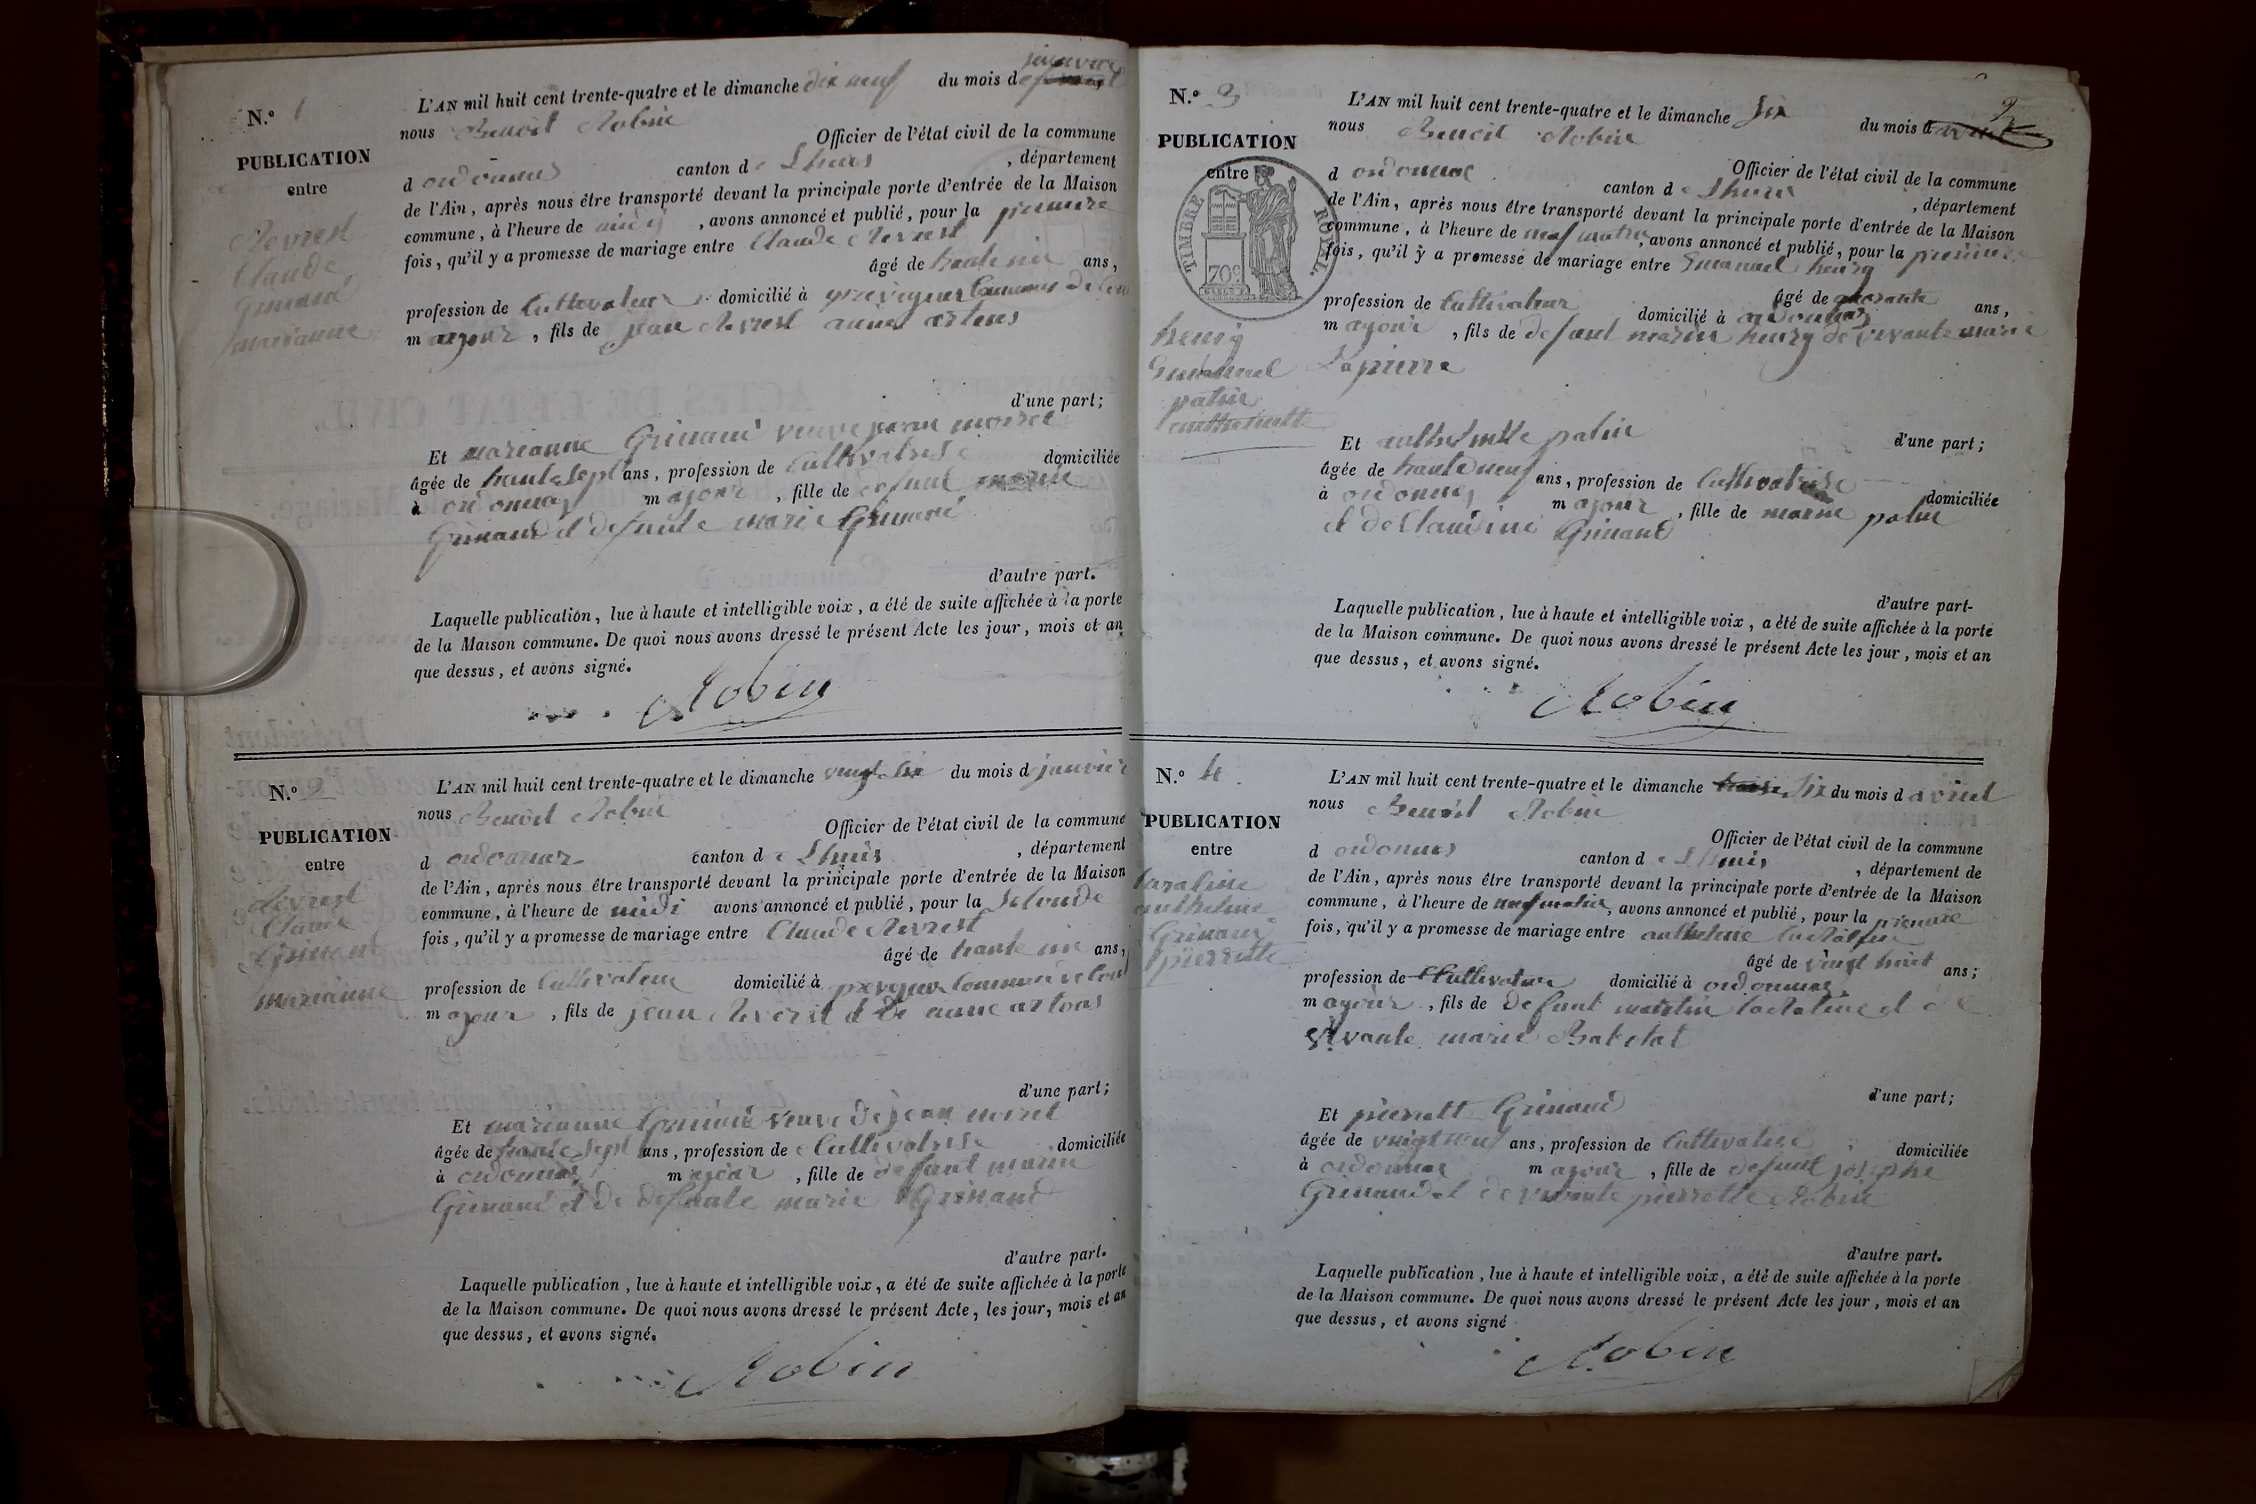 N.º 1
PUBLICATION
entre
Revrest
Claude
Grinand
marianne
janvier
L'AN mil huit cent trente-quatre et le dimanche dix neuf du mois d
nous Benoit Robin
Officier de l'état civil de la commune
d ordonnas canton d e Lhuis , département
de l'Ain, après nous être transporté devant la principale porte d'entrée de la Maison
commune, à l'heure de midi , avons annoncé et publié, pour la premiere
fois, qu'il y a promesse de mariage entre Claude Revrest
âgé de trente un ans,
profession de Cultivateur domicilié à Commune de
m ajeur , fils de jean Revrest anne artons
d'une part;
Et marianne Grinand veuve moiret
âgée de trente sept ans, profession de Cultivatrise domiciliée
à ordonnas m ajour , fille de defunt marin
Grinand et defunte marie Grinand
d'autre part.
Laquelle publication, lue à haute et intelligible voix, a été de suite affichée à la porte
de la Maison commune. De quoi nous avons dressé le présent Acte les jour, mois et an
que dessus, et avons signé.
Robin
N.º 2
PUBLICATION
entre
Revrest
Claude
Grinand
marianne
L'AN mil huit cent trente-quatre et le dimanche vingt six du mois d janvier
nous Benoit Robin
Officier de l'état civil de la commune
d ordonnas canton d e Lhuis , département
de l'Ain, après nous être transporté devant la principale porte d'entrée de la Maison
commune, à l'heure de midi avons annoncé et publié, pour la seconde
fois, qu'il y a promesse de mariage entre Claude Revrest
âgé de trente un ans,
profession de Cultivateur domicilié à commune de
m ajour , fils de jean Reverst et de anne artons
d'une part;
Et marianne Grinand veuve de jean moiret
âgée de trente sept ans, profession de Cultivatrise domiciliée
à ordonnas m ajour , fille de defunt marin
Grinand et de defunte marie Grinand
d'autre part.
Laquelle publication, lue à haute et intelligible voix, a été de suite affichée à la porte
de la Maison commune. De quoi nous avons dressé le présent Acte, les jour, mois et an
que dessus, et avons signé.
Robin
2
N.º 3
PUBLICATION
entre
TIMBRE ROYAL.
70c
henry
Emanuel
patin
anthelmette
L'AN mil huit cent trente-quatre et le dimanche six du mois d avril
nous Benoit Robin
Officier de l'état civil de la commune
d ordonnas canton d e Lhuis , département
de l'Ain, après nous être transporté devant la principale porte d'entrée de la Maison
commune, à l'heure de neuf matin, avons annoncé et publié, pour la premiere
fois, qu'il y a promesse de mariage entre Emanuel henry
âgé de quarante ans,
profession de Cultivateur domicilié à ordonnas
m ajour , fils de defunt marin henry de vivante marie
Lapierre
d'une part;
Et anthelmette patin
âgée de trente neuf ans, profession de Cultivatrise domiciliée
à ordonnas m ajour , fille de marin patin
et de Claudine Grinand
d'autre part-
Laquelle publication, lue à haute et intelligible voix, a été de suite affichée à la porte
de la Maison commune. De quoi nous avons dressé le présent Acte les jour, mois et an
que dessus, et avons signé.
Robin
N.º 4
PUBLICATION
entre
anthelme
Grinand
pierrette
L'AN mil huit cent trente-quatre et le dimanche six du mois d avril
nous Benoit Robin
Officier de l'état civil de la commune
d ordonnas canton d e Lhuis , département de
de l'Ain, après nous être transporté devant la principale porte d'entrée de la Maison
commune, à l'heure de neuf matin, avons annoncé et publié, pour la premiere
fois, qu'il y a promesse de mariage entre anthelme
âgé de vingt huit ans;
profession de Cultivateur domicilié à ordonnas
m ajour , fils de defunt martin et de
vivante marie
d'une part;
Et pierrette Grinand
âgée de vingt neuf ans, profession de Cultivatrise domiciliée
à ordonnas m ajour , fille de defunt josephe
Grinand et de vivante pierrette Robin
d'autre part.
Laquelle publication, lue à haute et intelligible voix, a été de suite affichée à la porte
de la Maison commune. De quoi nous avons dressé le présent Acte les jour, mois et an
que dessus, et avons signé
Robin